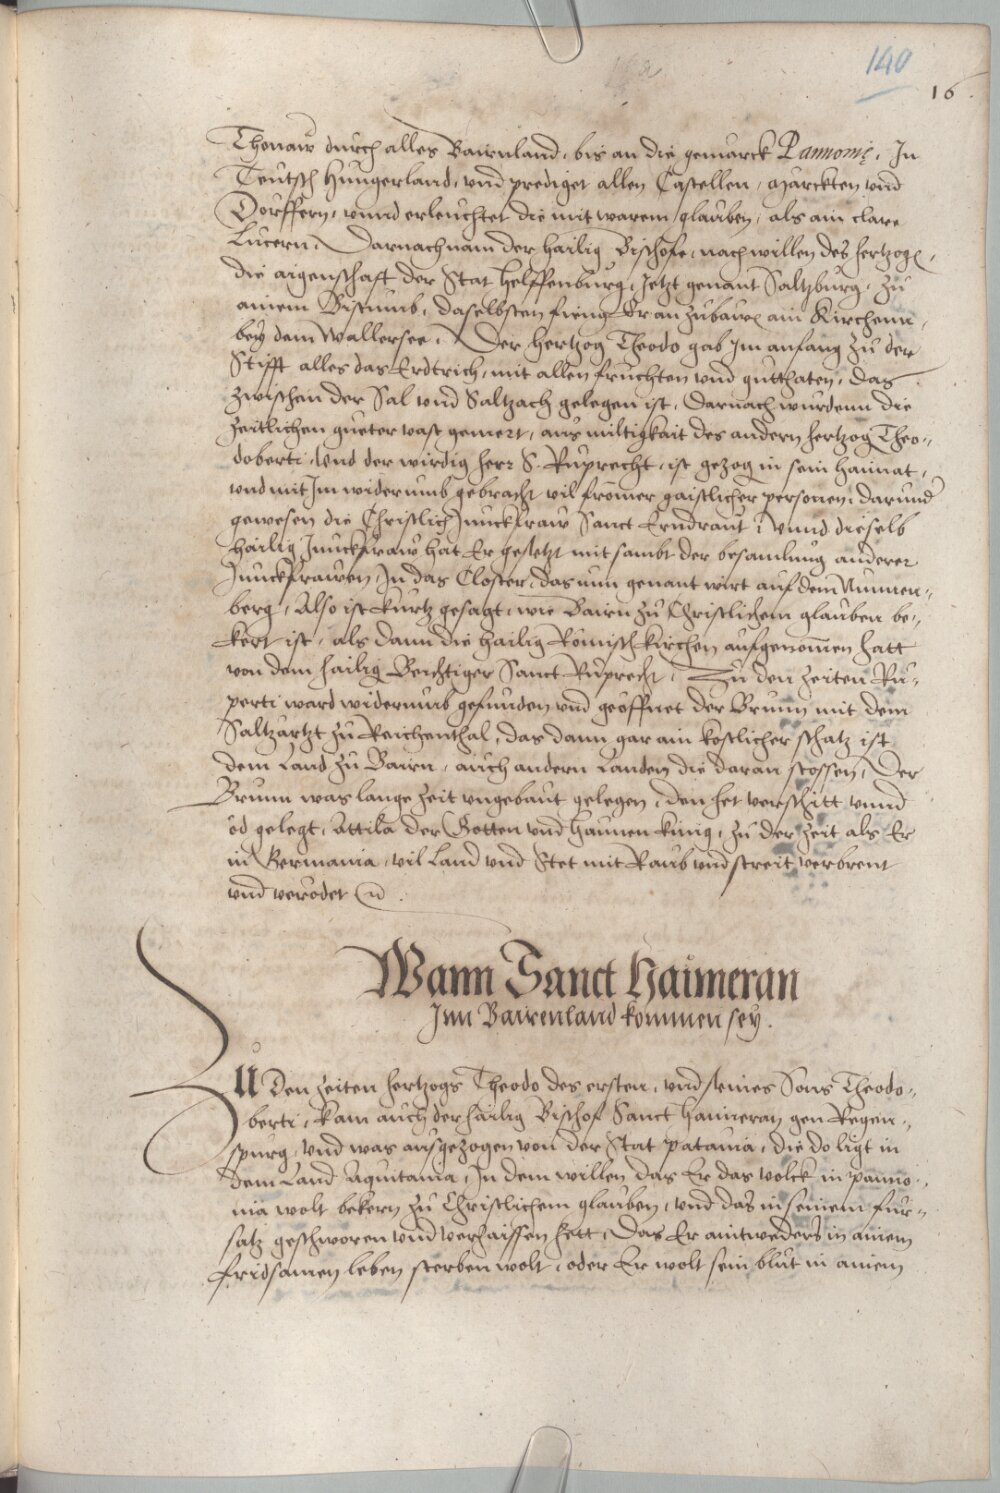 140
16.
Thonaw durch alles Bairnland, bis an die gemarck Pannonię, In
Teutsch Hungerland, und prediget allen Castellen, Marckten und
Dorffern, unnd erleuchtet die mit warem glauben, als ain clare
Lucern. Darnach nam der hailig Bischofe, nach willen des hertzogs,
die aigenschaft der Stat Helffenburg, Jetzt genant Saltzburg, zu
ainem Bistumb, daselbsten fieng Er an zubauen ain Kirchenn,
bey dem Wallersee. Der hertzog Theodo gab Im anfang zu der
Stifft alles das Erdtrich, mit allen fruchten und gutthaten, das
zwischen der Sal und Saltzach gelegen ist, Darnach wurdenn die
Zeitlichen gueter vast gemert, aus miltigkait des andern hertzog Theo-
doberti, Und der wirdig herr S. Ruprecht, ist gezogen in sein haimat,
und mit Im widerumb gebracht vil fromer gaistlicher personen, darund
gewesen die Christlich Junckfraw Sanct Erndraut, Unnd dieselb
hailig Junckfraw hat Er gesetzt mit sambt der besamlung anderer
Junckfrawen, In das Closter, das nun genant wirt auf dem Nunnen-
berg, Also ist kurtz gesagt, wie Bairn zu Christlichem glauben be-
kert ist, als dann die hailig Römisch kirchen aufgenomen hatt
von dem hailig Beichtiger Sanct Ruprecht. Zu den Zeiten Ru-
perti ward widerumb gefunden und geoffnet der Brunn mit dem
Saltzartzt zu Reichenthal, das dann gar ain kostlicher schatz ist
dem Land zu Bairn, auch andern Landen die daran stossen, Der
Brunn was lange Zeit ungebaut gelegen, den het verschitt unnd
öd gelegt, Attila der Gotten und Haunen künig, zu der Zeit als Er
in Germania, vil Land und Stet mit Raub und streit verbrent
und verödet
Wann Sanct Haimeran
Inn Bairenland kommen sey.
Zu Den Zeiten hertzogs Theodo des ersten, und seines Sons Theodo-
berti, kam auch der hailig Bischof Sanct Haimeran gen Regen-
spurg, Und was ausgezogen von der Stat patavia, die do ligt in
dem Land Aquitania, In dem willen das Er das volck in panno-
nia wolt bekern zu Christlichem glauben, und das in seinem fur-
satz geschworen und verhaissen hett, Das Er aintweders in ainem
fridsamen leben sterben wolt, oder Er wolt sein blut in ainem